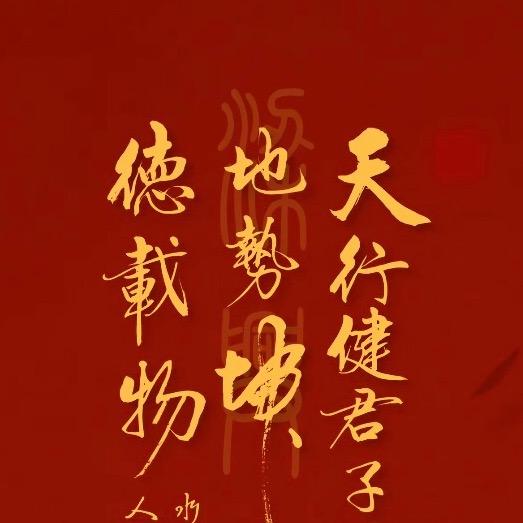 天行健君子
地勢坤
德載物
水
人